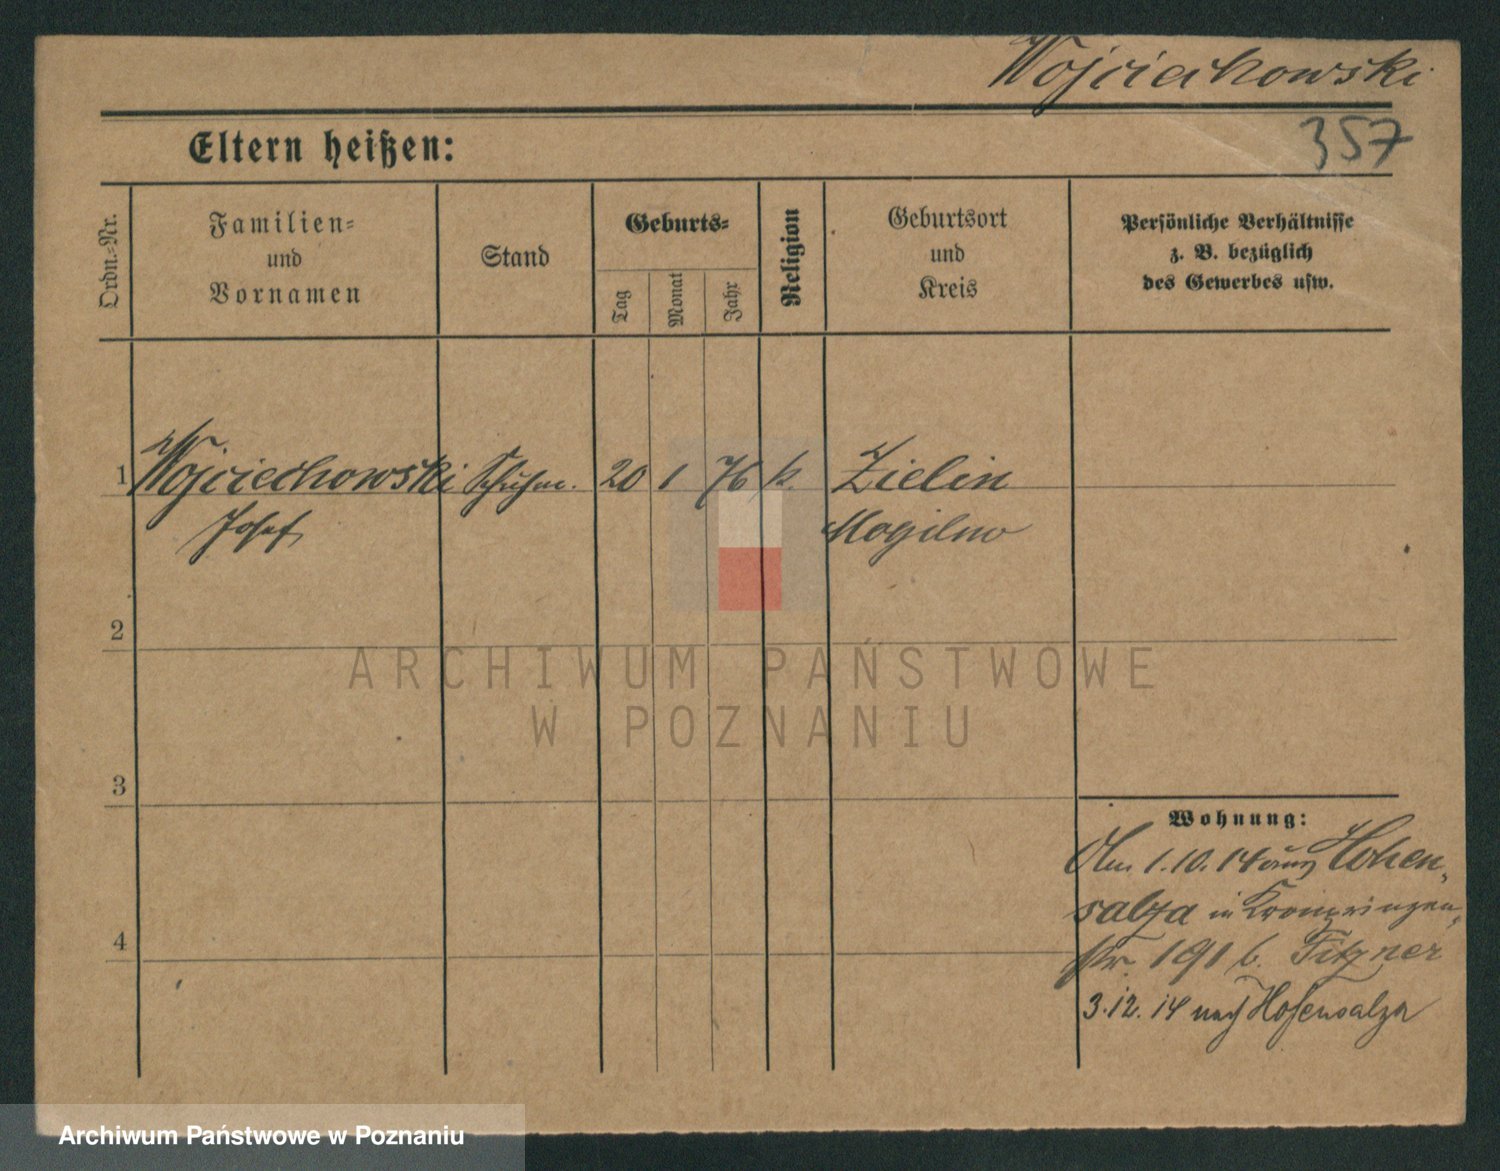 Wojciechowski
357
Eltern heißen:
Ordn.-Nr.
Familien-
und
Vornamen
Stand
Geburts-
Tag
Monat
Jahr
Religion
Geburtsort
und
Kreis
Persönliche Verhältnisse
z. B. bezüglich
des Gewerbes usw.
1 Wojciechowski Schuhm. 20 1 76 k. Zielin
Josef Mogilno
2
3
4
Wohnung:
Am 1.10.14 aus Hohen-
salza in Kronprinzen-
str. 191 b. Fitzner
3.12.14 nach Hohensalza
ARCHIWUM PAŃSTWOWE
W POZNANIU
Archiwum Państwowe w Poznaniu